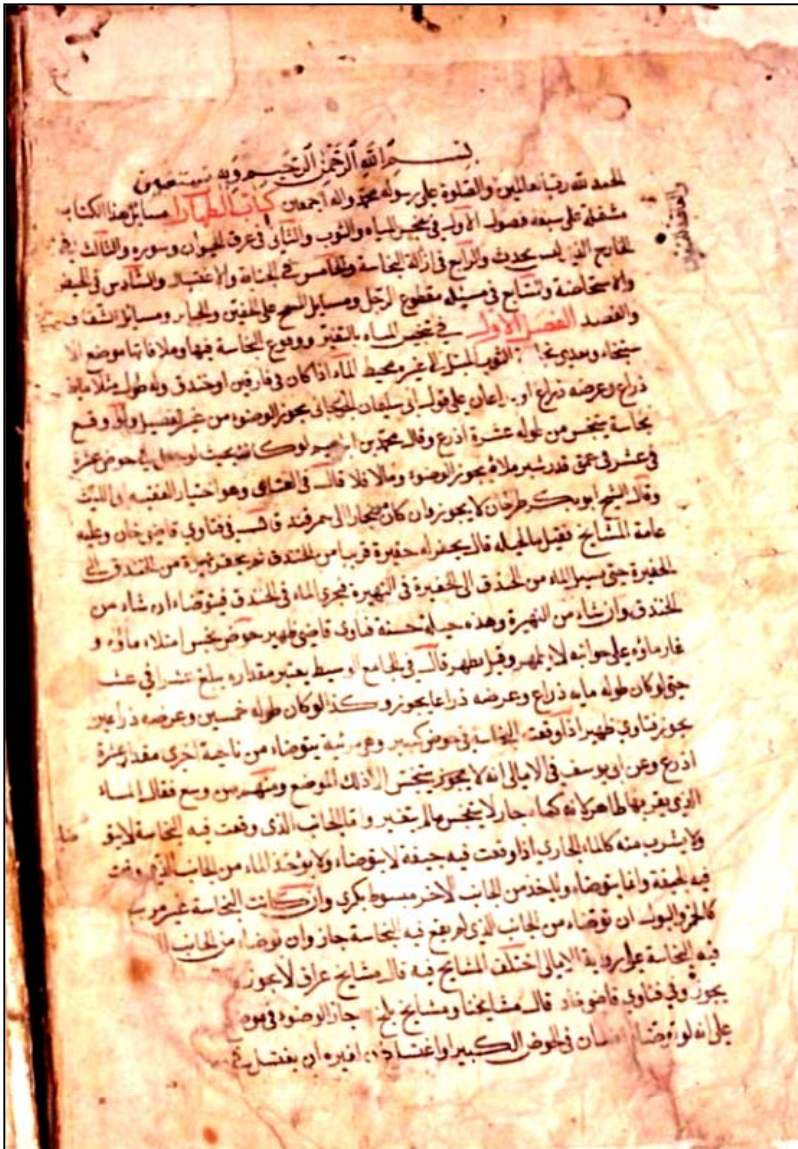 بسم الله الرحمن الرحيم وبه نستعين
الحمد لله رب العالمين والصلوة على رسوله محمد واله اجمعين كتاب الطهارة مسائل هذا الكتاب
مشتملة على سبعة فصول الاول في تنجيس المياه والثوب والثاني في عرق الحيوان وسوره والثالث في
الخارج الذي ليس بحدث والرابع في ازالة النجاسة والخامس في الجنابة والاغتسال والسادس في الحيض
والاستحاضة والسابع في مسئلة مقطوع الرجل ومسايل المسح على الخفين والجباير ومسايل الشف
والفصد الفصل الاول في تنجس المياه بالتغير ووقوع النجاسة فيها وملاقاتها موضع الا
ستنجاء الثوب المبتل الى غير محيط الماء اذا كان في فارقين او خندق وله طول مثلا ماية
ذراع وعرضه ذراع او على قول ابى سليمان الجوزجانى يجوز الوضوء من غير تفصيل ولو وقع
نجاسة يتنجس من طوله عشرة اذرع وقال محمد بن ابراهيم لو كانت بحيث لو في حوض عشرة
في عشر في عمق قدر شبر ملاه يجوز الوضوء ومالا فلا قال في العتابى وهو اختيار الفقيه ابى الليث
وقال الشيخ ابو بكر طرخان لا يجوز وان كان من بخارا الى سمرقند قال في فتاوى قاضى خان وعليه
عامة المشايخ فقيل ما الحيلة قال يحفر له حفيرة قريبا من الخندق ثم يحفر نهيرة من الخندق الى
الحفيرة حتى يسيل الماء من الخندق الى الحفيرة في النهيرة فيجرى الماء في الخندق فيتوضاء ان شاء من
الخندق وان شاء من النهيرة وهذه حيلة حسنة فتاوى قاضى ظهير حوض نجس امتلاء ماؤه و
غار ماؤه على جوانبه لا يطهر وقيل يطهر قال في الجامع الوسيط يعتبر مقداره يبلغ عشرا في عشر
حتى لو كان طوله ماية ذراع وعرضه ذراعا يجوز وكذا لو كان طوله خمسين وعرضه ذراعين
يجوز فتاوى ظهير اذا وقعت النجاسة في حوض كبير وهى مرئية يتوضاء من ناحية اخرى مقدار عشرة
اذرع وعن ابى يوسف في الامالى انه لا يجوز يتنجس الا ذلك الموضع ومنهم من وسع فقال الماء
الذى يقربها طاهر لانه كماء جار لا يتنجس مالم يتغير واما الجانب الذى وقعت فيه النجاسة لا يتو
ضا
ولا يشرب منه كالماء الجارى اذا وقعت فيه جيفة لا يتوضاء ولا يوخذ الماء من الجانب الذى وقعت
فيه الجيفة وانما يتوضاء وياخذ من الجانب الاخر مبسوط بكرى وان كانت النجاسة غير مرئية
كالخمر والبول ان توضاء من الجانب الذى لم يقع فيه النجاسة جاز وان توضاء من الجانب
فيه النجاسة على رواية الامالى اختلف المشايخ فيه قال مشايخ عراق لا يجوز
يجوز وفي فتاوى قاضى خان قال مشايخنا ومشايخ بلخ جاز الوضوء في موضع
على انه لو توضاء انسان في الحوض الكبير او اغتسل ان يغتسل